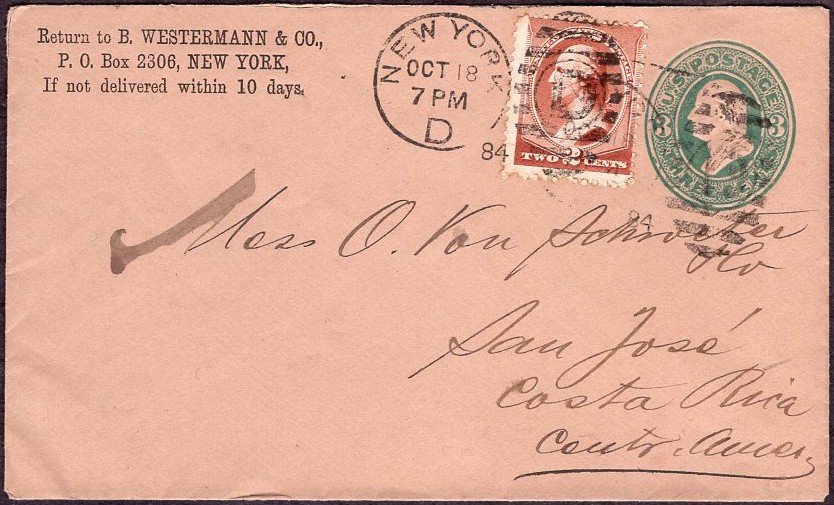 Return to B. WESTERMANN & CO.,
P. O. Box 2306, NEW YORK,
If not delivered within 10 days.
NEW YORK
OCT 18
7 PM
D
84
TWO 2 CENTS
U.S. POSTAGE
3 3
84
Mess O. Von Schroeter
San José
Costa Rica
Centr. Amer.